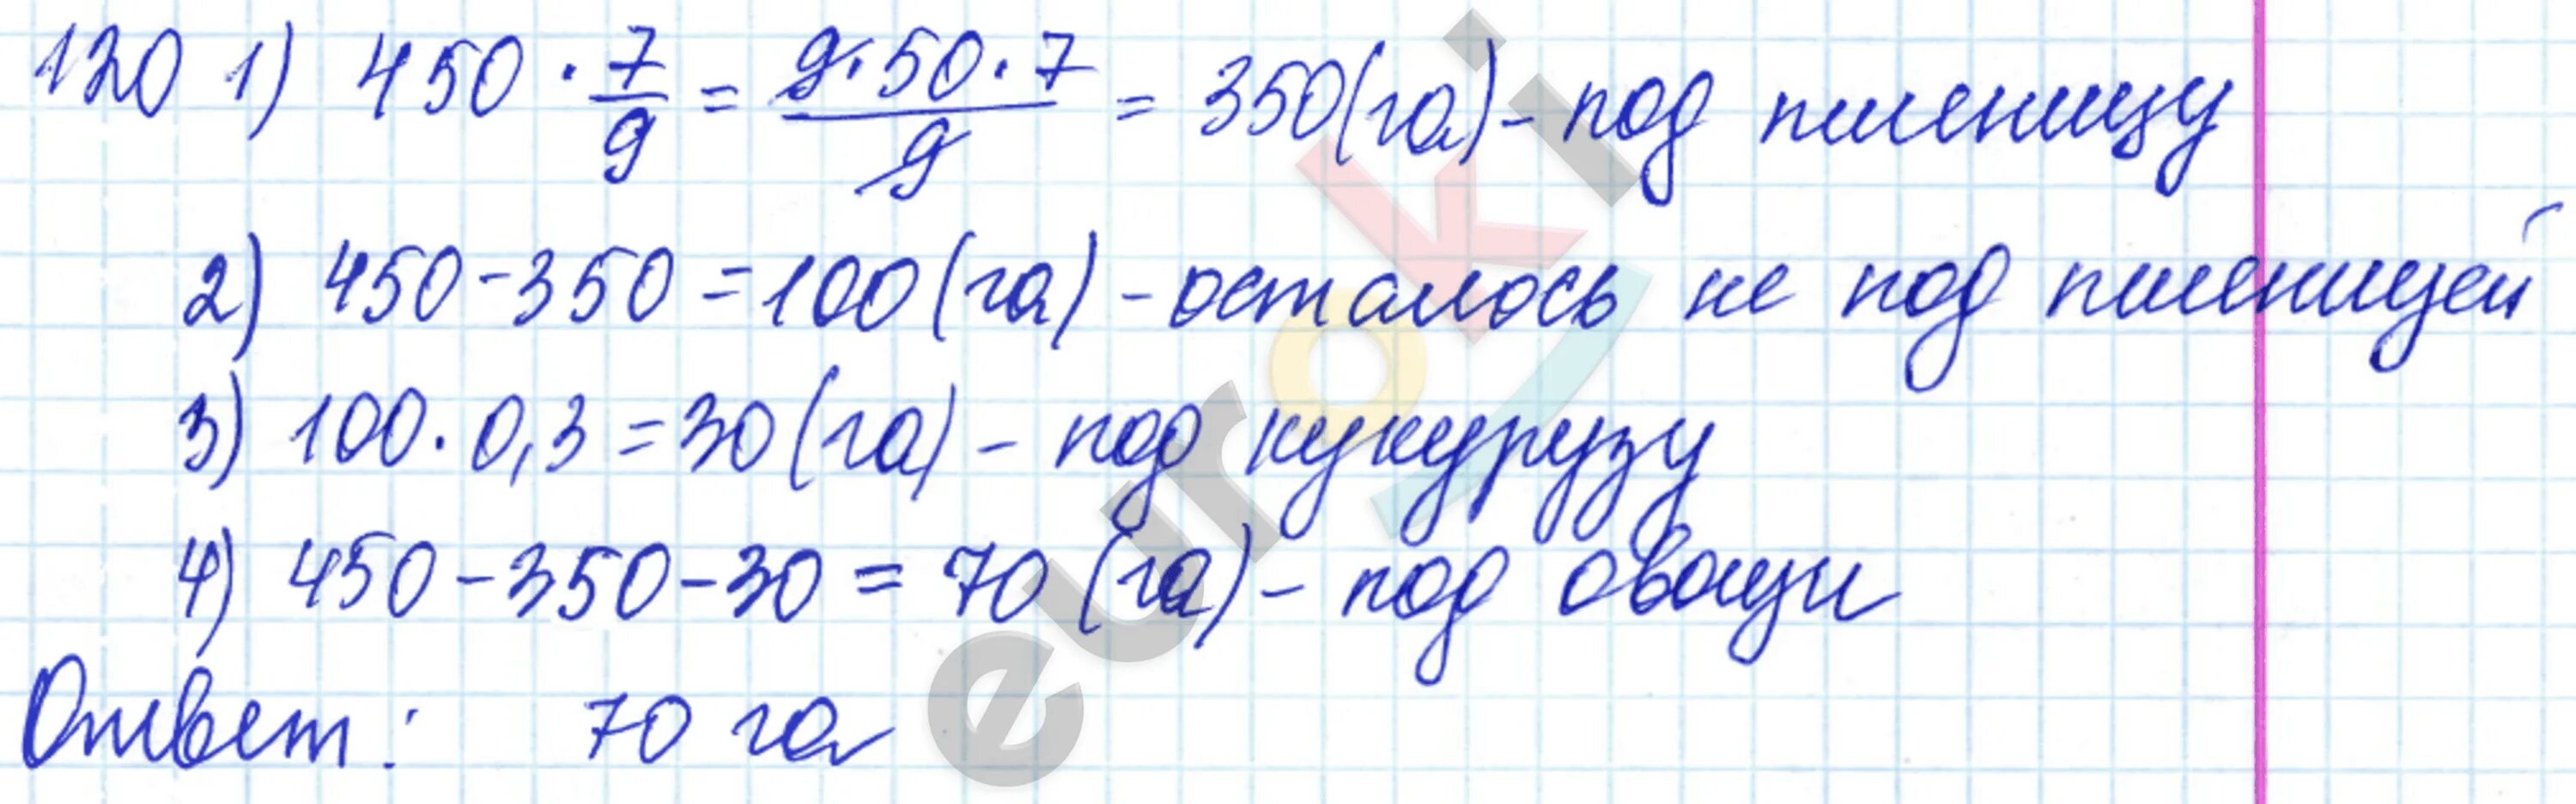 120 1) 450 · 7/9 = 9·50·7/9 = 350 (га) - под пшеницу
2) 450 - 350 = 100 (га) - осталось не под пшеницей
3) 100 · 0,3 = 30 (га) - под кукурузу
4) 450 - 350 - 30 = 70 (га) - под овощи
Ответ: 70 га
euroki